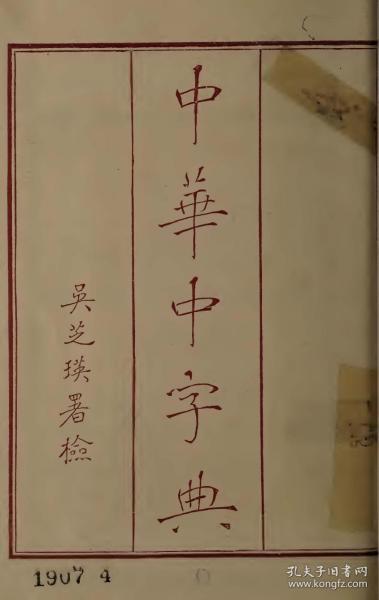 中華中字典
吳芝瑛署檢
1907 4
孔夫子旧书网
www.kongfz.com